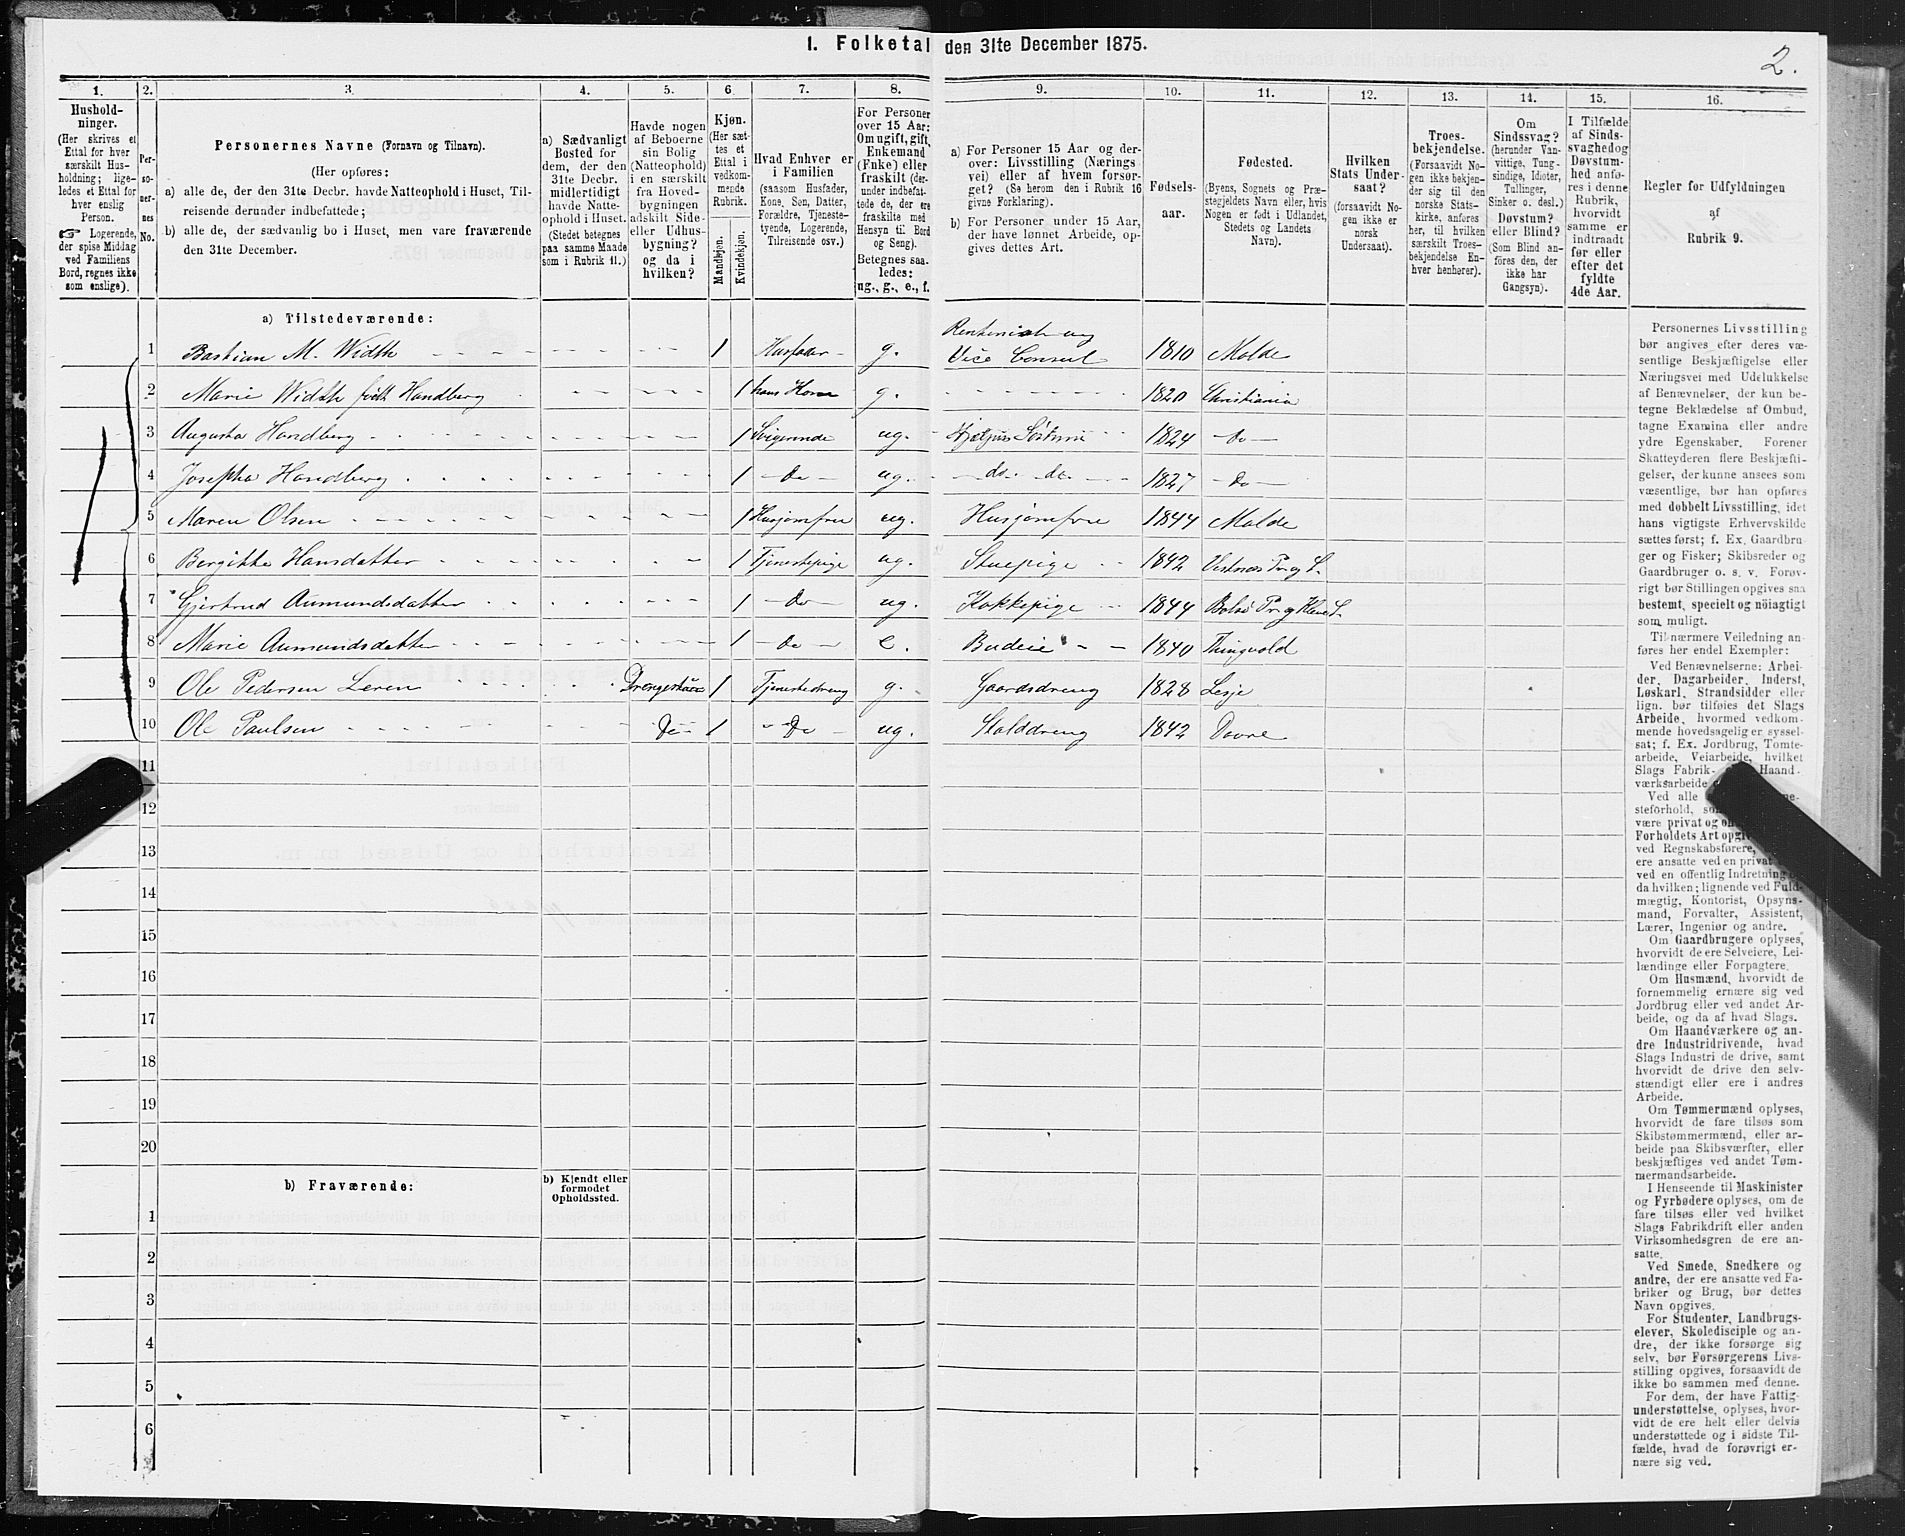 1. Folketal den 31te December 1875.
2.
1. 2. 3. 4. 5. 6. 7. 8. 9. 10. 11. 12. 13. 14. 15. 16.
Hushold-
ninger.
(Her skrives et
Ettal for hver
særskilt Hus-
holdning; lige-
ledes et Ettal for
hver enslig
Person.
☞ Logerende,
der spise Middag
ved Familiens
Bord, regnes ikke
som enslige).
Per-
so-
ner-
nes
No.
Personernes Navne (Fornavn og Tilnavn).
(Her opføres:
a) alle de, der den 31te Decbr. havde Natteophold i Huset, Til-
reisende derunder indbefattede;
b) alle de, der sædvanlig bo i Huset, men vare fraværende
den 31te December.
a) Sædvanligt
Bosted for
dem, der den
31te Decbr.
midlertidigt
havde Natte-
ophold i Huset.
(Stedet betegnes
paa samme Maade
som i Rubrik 11.)
Havde nogen
af Beboerne
sin Bolig
(Natteophold)
i en særskilt
fra Hoved-
bygningen
adskilt Side-
eller Udhus-
bygning?
og da i
hvilken?
Kjøn.
(Her sæt-
tes et
Ettal i
vedkom-
mende
Rubrik.
Mandkjøn.
Kvindekjøn.
Hvad Enhver er
i Familien
(saasom Husfader,
Kone, Søn, Datter,
Forældre, Tjeneste-
tyende, Logerende,
Tilreisende osv.)
For Personer
over 15 Aar:
Om ugift, gift,
Enkemand
(Enke) eller
fraskilt (der-
under indbefat-
tede de, der ere
fraskilte med
Hensyn til Bord
og Seng).
Betegnes saa-
ledes:
ug., g., e., f.
a) For Personer 15 Aar og der-
over: Livsstilling (Nærings
vei) eller af hvem forsør-
get? (Se herom den i Rubrik 16
givne Forklaring).
b) For Personer under 15 Aar,
der have lønnet Arbeide, op-
gives dettes Art.
Fødsels-
aar.
Fødested.
(Byens, Sognets og Præ-
stegjeldets Navn eller, hvis
Nogen er født i Udlandet,
Stedets og Landets
Navn).
Hvilken
Stats Under-
saat?
(forsaavidt No-
gen ikke er
norsk
Undersaat).
Troes-
bekjendelse.
(Forsaavidt No-
gen ikke bekjen-
der sig til den
norske Stats-
kirke, anføres
her, til hvilken
særskilt Troes-
bekjendelse En-
hver henhører).
Om
Sindssvag?
(herunder Van-
vittige, Tung-
sindige, Idioter,
Tullinger,
Sinker o. desl.)
Døvstum?
eller Blind?
(Som Blind an-
føres den, der
ikke har
Gangsyn).
I Tilfælde
af Sinds-
svaghedog
Døvstum-
hed anfø-
res i denne
Rubrik,
hvorvidt
samme er
indtraadt
før eller
efter det
fyldte
4de Aar.
Regler for Udfyldningen
af
Rubrik 9.
a) Tilstedeværende:
1 Bastian M. Width 1 Husfader g. Rentenist og
Vice Consul 1810 Molde
2 Marie Width født Handberg 1 hans Kone g. 1820 Christiania
3 Augusta Handberg 1 Svigerinde ug. Søstrene 1824 Do
4 Josepha Handberg 1 Do ug. do. do. 1827 Do
5 Maren Olsen 1 Husjomfrue ug. Husjomfrue 1844 Molde
6 Bergitte Hansdatter 1 Tjenestepige ug. Stuepige 1842 Vestnæs Pr. og S.
7 Gjertrud Aumundsdatter 1 Do ug. Kokkepige 1844 Bolsø Pr. og S.
8 Marie Aumundsdatter 1 Do e. Budeie 1840 Thingvold
9 Ole Pedersen Leren Drengestuen 1 Tjenestedreng g. Gaardsdreng 1828 Lesje
10 Ole Paulsen Do 1 Do ug. Stalddreng 1842 Dovre
11
12
13
14
15
16
17
18
19
20
b) Fraværende:
b) Kjendt eller
formodet
Opholdssted.
1
2
3
4
5
6
Personernes Livsstilling
bør angives efter deres væ-
sentlige Beskjæftigelse eller
Næringsvei med Udelukkelse
af Benævnelser, der kun be-
tegne Beklædelse af Ombud,
tagne Examina eller andre
ydre Egenskaber. Forener
Skatteyderen flere Beskjæfti-
gelser, der kunne ansees som
væsentlige, bør han opføres
med dobbelt Livsstilling, idet
hans vigtigste Erhvervskilde
sættes først; f. Ex. Gaardbru-
ger og Fisker; Skibsreder og
Gaardbruger o. s. v. Forøv-
rigt bør Stillingen opgives saa
bestemt, specielt og nöiagtigt
som muligt.
Til nærmere Veiledning an-
føres her endel Exempler:
Ved Benævnelserne: Arbei-
der, Dagarbeider, Inderst,
Løskarl, Strandsidder eller
lign. bør tilføies det Slags
Arbeide, hvormed vedkom-
mende hovedsagelig er syssel-
sat; f. Ex. Jordbrug, Tomte-
arbeide, Veiarbeide, hvilket
Slags Fabrik- Haand-
værksarbeide
Ved alle
steforhold,
være privat og
Forholdets Art
ved Regnskabsførere,
ere ansatte ved en privat
ved en offentlig Indretning
da hvilken; lignende ved Fuld-
mægtig, Kontorist, Opsyns-
mand, Forvalter, Assistent,
Lærer, Ingeniør og andre.
Om Gaardbrugere oplyses,
hvorvidt de ere Selveiere, Lei-
lændinge eller Forpagtere.
Om Husmænd, hvorvidt de
fornemmelig ernære sig ved
Jordbrug eller ved andet Ar-
beide, og da af hvad Slags.
Om Haandværkere og an-
dre Industridrivende, hvad
Slags Industri de drive, samt
hvorvidt de drive den selv-
stændigt eller ere i andres
Arbeide.
Om Tømmermænd oplyses,
hvorvidt de fare tilsøs som
Skibstømmermænd, eller ar-
beide paa Skibsværfter, eller
beskjæftiges ved andet Tøm-
mermandsarbeide.
I Henseende til Maskinister
og Fyrbødere oplyses, om de
fare tilsøs eller ved hvilket
Slags Fabrikdrift eller anden
Virksomhedsgren de ere an-
satte.
Ved Smede, Snedkere og
andre, der ere ansatte ved Fa-
briker og Brug, bør dettes
Navn opgives.
For Studenter, Landbrugs-
elever, Skoledisciple og an-
dre, der ikke forsørge sig
selv, bør Forsørgerens Livs-
stilling opgives, forsaavidt de
ikke bo sammen med denne.
For dem, der have Fattig-
understøttelse, oplyses, hvor-
vidt de ere helt eller delvis
understøttede og i sidste Til-
fælde, hvad de forøvrigt er-
nære sig ved.